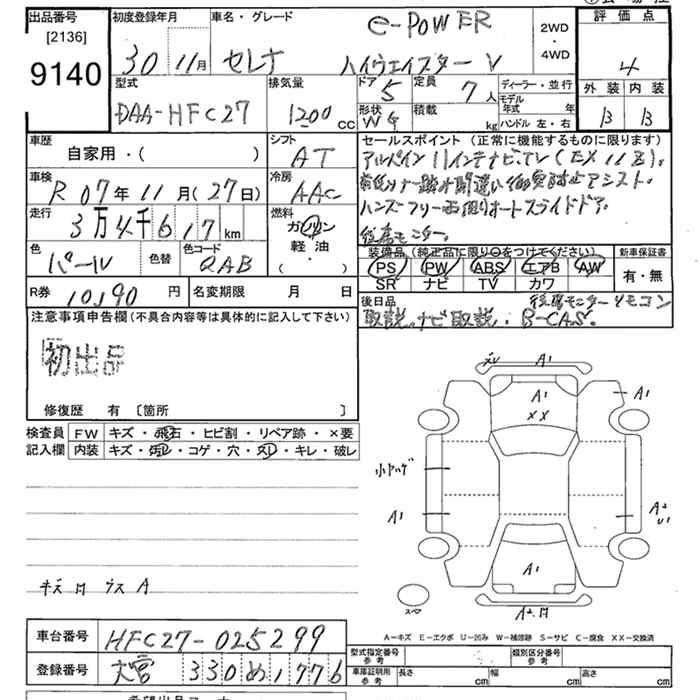 出品番号
[2136]
9140
初度登録年月
30 11月
車名・グレード
e-POWER
セレナ ハイウェイスターV
2WD
・
4WD
評価点
4
外装 内装
B B
型式
DAA-HFC27
排気量
1200 cc
ドア 5
定員 7人
形状 WG
積載 kg
ディーラー・並行
モデル年式 年
ハンドル 左・右
車歴
自家用・( )
シフト
AT
車検
R 07年 11月(27日)
冷房
AAC
走行
3万4千617km
燃料
ガソリン
軽油
( )
色
パール
色替
色コード
QAB
R券 10190円
名変期限 月 日
セールスポイント (正常に機能するものに限ります)
アルパイン11インチナビ.TV(EX11Z).
踏み間違い アシスト.
ハンズフリー両側オートスライドドア.
後席モニター.
装備品 (純正品に限り○をつけてください)
PS PW ABS エアB AW
SR ナビ TV カワ
新車保証書
有・無
後日品
後席モニターリモコン
取説.ナビ取説. B-CAS.
注意事項申告欄(不具合内容等は具体的に記入して下さい)
初出品
修復歴 有 〔箇所 〕
検査員記入欄
FW キズ・飛石・ヒビ割・リペア跡・×要
内装 キズ・汚レ・コゲ・穴・スレ・キレ・破レ
A1
A1
XX
A1
小キハゲ
A1
A2
U1
A1
A2.
スペア
キズ 凹 ウス A
A-キズ E-エクボ U-凹み W-補修跡 S-サビ C-腐食 XX-交換済
車台番号
HFC27-025299
登録番号
大宮 330 め 1776
型式指定番号
参考
類別区分番号
参考
車庫証明用
参考
長さ cm
幅 cm
高さ cm